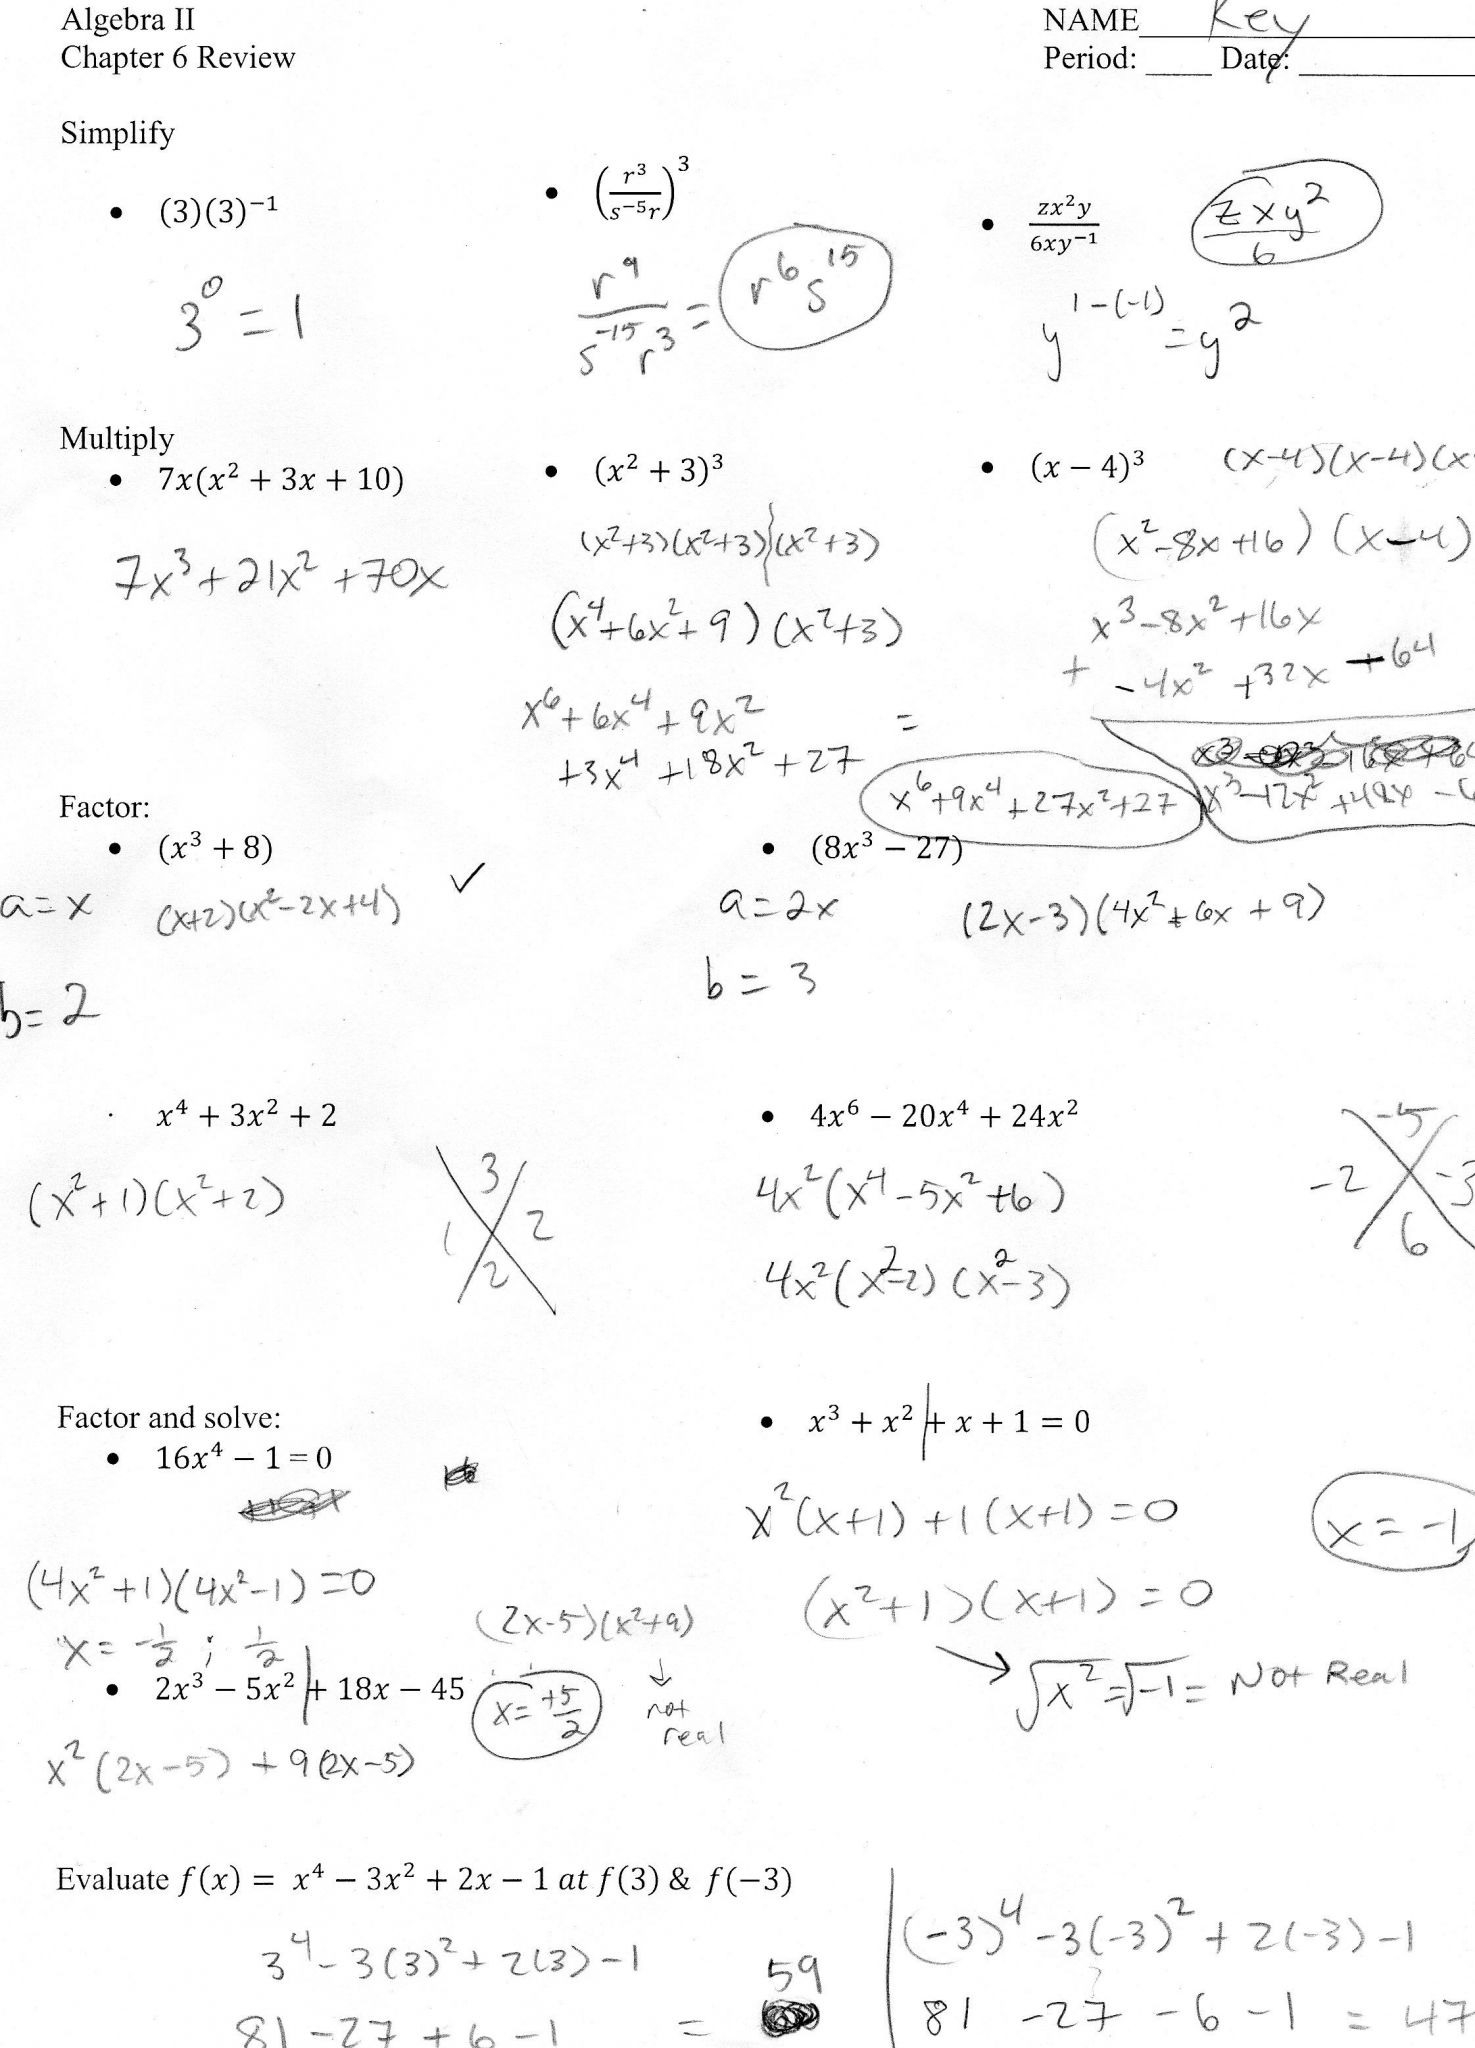 Algebra II NAME Key
Chapter 6 Review Period: ____ Date: ____
Simplify
• (3)(3)⁻¹
3⁰ = 1
• (r³/(s⁻⁵r))³
r⁹/(s⁻¹⁵r³) = r⁶s¹⁵
• zx²y/(6xy⁻¹)
zxy²/6
y¹⁻⁽⁻¹⁾ = y²
Multiply
• 7x(x² + 3x + 10)
7x³ + 21x² + 70x
• (x² + 3)³
(x²+3)(x²+3)(x²+3)
(x⁴+6x²+9)(x²+3)
x⁶+6x⁴+9x²
+3x⁴+18x²+27 =
x⁶+9x⁴+27x²+27
• (x − 4)³ (x-4)(x-4)(x
(x²-8x+16)(x-4)
x³-8x²+16x
+ -4x²+32x-64
x³-12x²+48x-6
Factor:
• (x³ + 8)
a=x (x+2)(x²-2x+4) ✓
b=2
• (8x³ − 27)
a=2x (2x-3)(4x²+6x+9)
b=3
· x⁴ + 3x² + 2
(x²+1)(x²+2)
3
1 2
2
• 4x⁶ − 20x⁴ + 24x²
4x²(x⁴-5x²+6)
4x²(x²-2)(x²-3)
-5
-2 -3
6
Factor and solve:
• 16x⁴ − 1 = 0
(4x²+1)(4x²-1)=0
x = -1/2 ; 1/2
• x³ + x² + x + 1 = 0
x²(x+1)+1(x+1)=0
x=-1
(x²+1)(x+1)=0
→ √x²=√-1 = Not Real
• 2x³ − 5x² + 18x − 45
x²(2x-5)+9(2x-5)
(2x-5)(x²+9)
x=+5/2
↓
not
real
Evaluate f(x) = x⁴ − 3x² + 2x − 1 at f(3) & f(−3)
3⁴-3(3)²+2(3)-1
81-27+6-1 = 59
(-3)⁴-3(-3)²+2(-3)-1
81-27-6-1 = 47